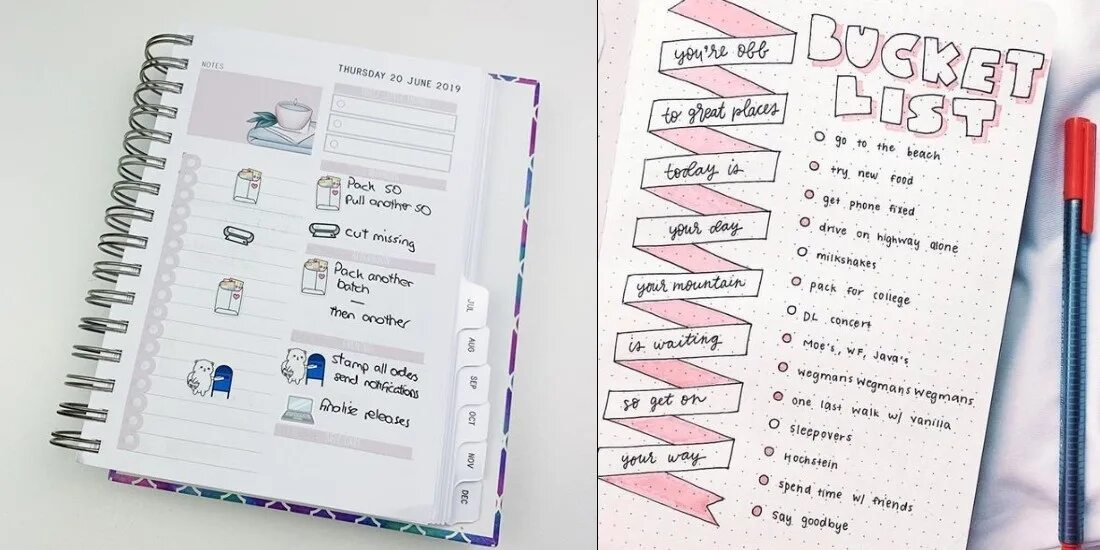 NOTES
THURSDAY 20 JUNE 2019
Pack 50
Pull another 50
cut missing
Pack another
batch
—
then another
stamp all orders
send notifications
finalise releases
JUL
AUG
SEP
OCT
NOV
DEC
you're off
to great places
today is
your day
your mountain
is waiting
so get on
your way
BUCKET
LIST
go to the beach
try new food
get phone fixed
drive on highway alone
milkshakes
pack for college
DL concert
Moe's, WF, Java's
wegmans wegmans wegmans
one last walk w/ vanilla
sleepovers
Hochstein
spend time w/ friends
say goodbye